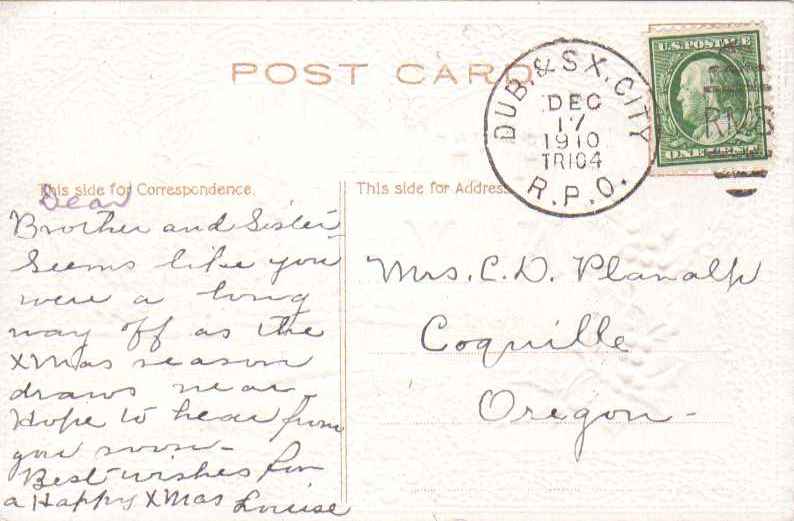 POST CARD
DUB. & SX. CITY
DEC
17
1910
TR104
R.P.O.
U.S. POSTAGE
This side for Correspondence.
This side for Address
Dear
Brother and Sister
Seems like you
were a long
way off as the
XMas season
draws near
Hope to hear from
you soon -
Best wishes for
a Happy XMas Louise
Mrs. C. D. Planalp
Coquille
Oregon -